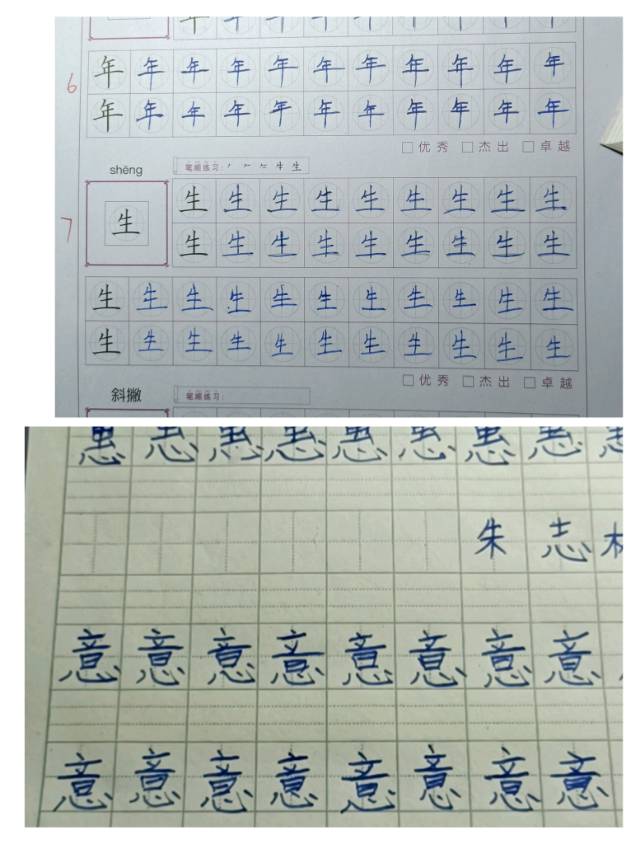 6 年 年 年 年 年 年 年 年 年 年 年
年 年 年 年 年 年 年 年 年 年 年
优秀 杰出 卓越
shēng 笔顺练习:
7 生 生 生 生 生 生 生 生 生 生
生 生 生 生 生 生 生 生 生
生 生 生 生 生 生 生 生 生 生 生
生 生 生 生 生 生 生 生 生 生 生
优秀 杰出 卓越
斜撇 笔顺练习:
朱 志
意 意 意 意 意 意 意 意
意 意 意 意 意 意 意 意